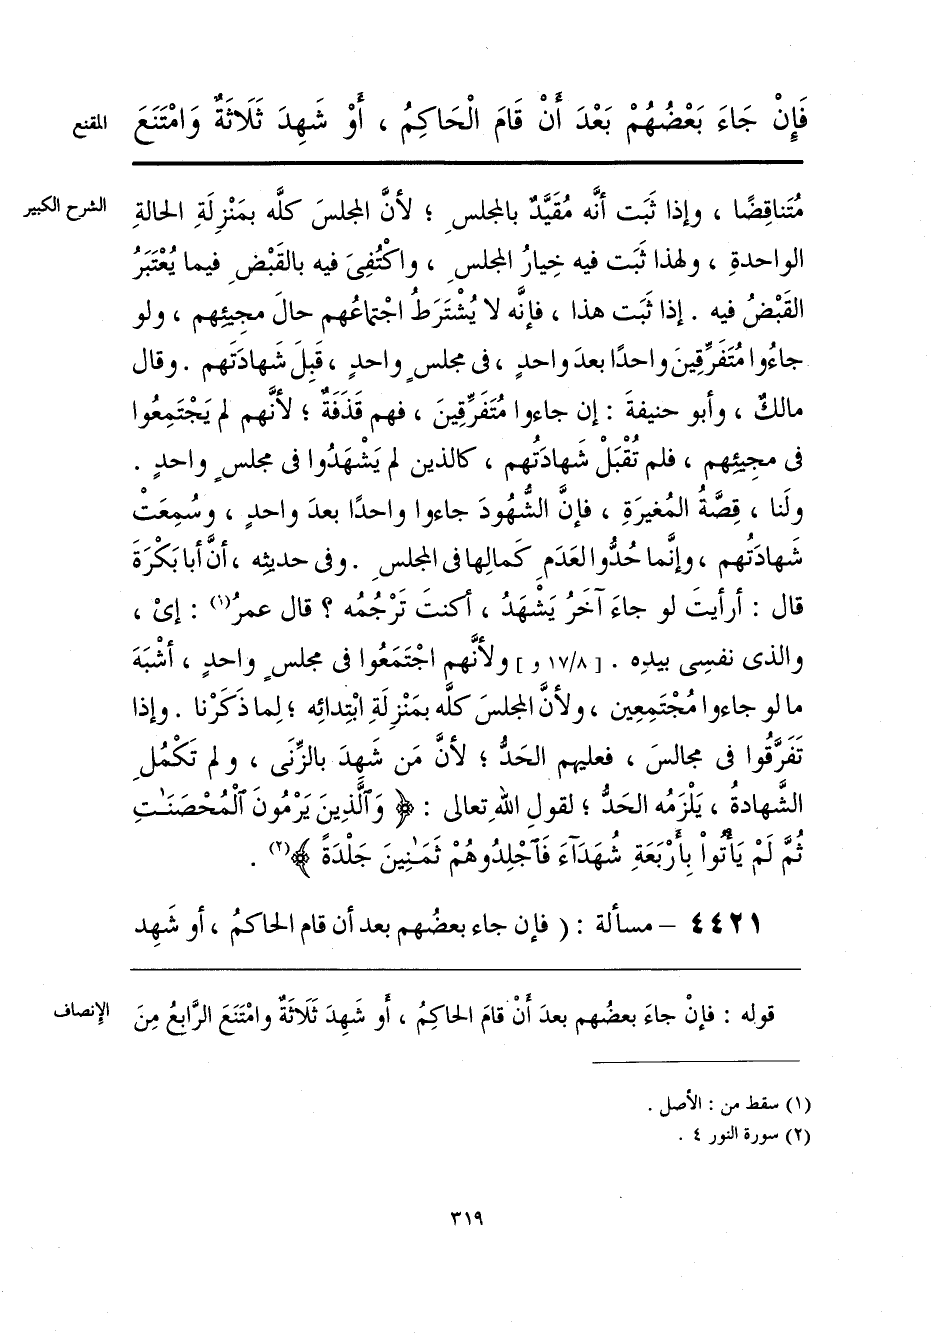 المقنع
فَإِنْ جَاءَ بَعْضُهُمْ بَعْدَ أَنْ قَامَ الْحَاكِمُ ، أَوْ شَهِدَ ثَلَاثَةٌ وَامْتَنَعَ
الشرح الكبير
مُتَناقِضًا ، وإذا ثَبَت أنَّه مُقَيَّدٌ بالمجلسِ ؛ لأنَّ المجلسَ كلَّه بمَنْزِلَةِ الحالةِ
الواحدةِ ، ولهذا ثَبَت فيه خِيارُ المجلسِ ، واكْتُفِىَ فيه بالقَبْضِ فيما يُعْتَبَرُ
القَبْضُ فيه . إذا ثَبَت هذا ، فإنَّه لا يُشْتَرَطُ اجْتِماعُهم حالَ مجيئِهم ، ولو
جاءُوا مُتَفَرِّقِينَ واحدًا بعدَ واحدٍ ، فى مجلسٍ واحدٍ ، قَبِلَ شَهادَتَهم . وقال
مالكٌ ، وأبو حنيفةَ : إن جاءوا مُتَفَرِّقِينَ ، فهم قَذَفَةٌ ؛ لأنَّهم لم يَجْتَمِعُوا
فى مجيئِهم ، فلم تُقْبَلْ شَهادَتُهم ، كالذين لم يَشْهَدُوا فى مجلسٍ واحدٍ .
ولَنا ، قِصَّةُ المُغيرَةِ ، فإنَّ الشُّهُودَ جاءوا واحدًا بعدَ واحدٍ ، وسُمِعَتْ
شَهادَتُهم ، وإنَّما حُدُّوا لعَدَمِ كَمالِها فى المجلسِ . وفى حديثِه ، أنَّ أبا بَكْرَةَ
قال : أرأيتَ لو جاءَ آخَرُ يَشْهَدُ ، أكنتَ تَرْجُمُه ؟ قال عمرُ(١) : إىْ ،
والذى نفسِى بيدِه . [ ١٧/٨ و ] ولأنَّهم اجْتَمَعُوا فى مجلسٍ واحدٍ ، أشْبَهَ
ما لو جاءوا مُجْتَمِعِين ، ولأنَّ المجلسَ كلَّه بمَنْزِلَةِ ابْتِدائِه ؛ لِما ذَكَرْنا . وإذا
تَفَرَّقُوا فى مجالسَ ، فعليهم الحَدُّ ؛ لأنَّ مَن شَهِدَ بالزِّنَى ، ولم تَكْمُلِ
الشَّهادةُ ، يَلْزَمُه الحَدُّ ؛ لقولِ اللهِ تعالى : ﴿ وَٱلَّذِينَ يَرْمُونَ ٱلْمُحْصَنَٰتِ
ثُمَّ لَمْ يَأْتُواْ بِأَرْبَعَةِ شُهَدَآءَ فَٱجْلِدُوهُمْ ثَمَٰنِينَ جَلْدَةً ﴾(٢) .
٤٤٢١ – مسألة : ( فإن جاء بعضُهم بعد أن قام الحاكمُ ، أو شَهِد
الإنصاف
قوله : فإنْ جاءَ بعضُهم بعدَ أَنْ قامَ الحاكِمُ ، أَو شَهِدَ ثَلَاثَةٌ وامْتَنَعَ الرَّابِعُ مِنَ
(١) سقط من : الأصل .
(٢) سورة النور ٤ .
٣١٩